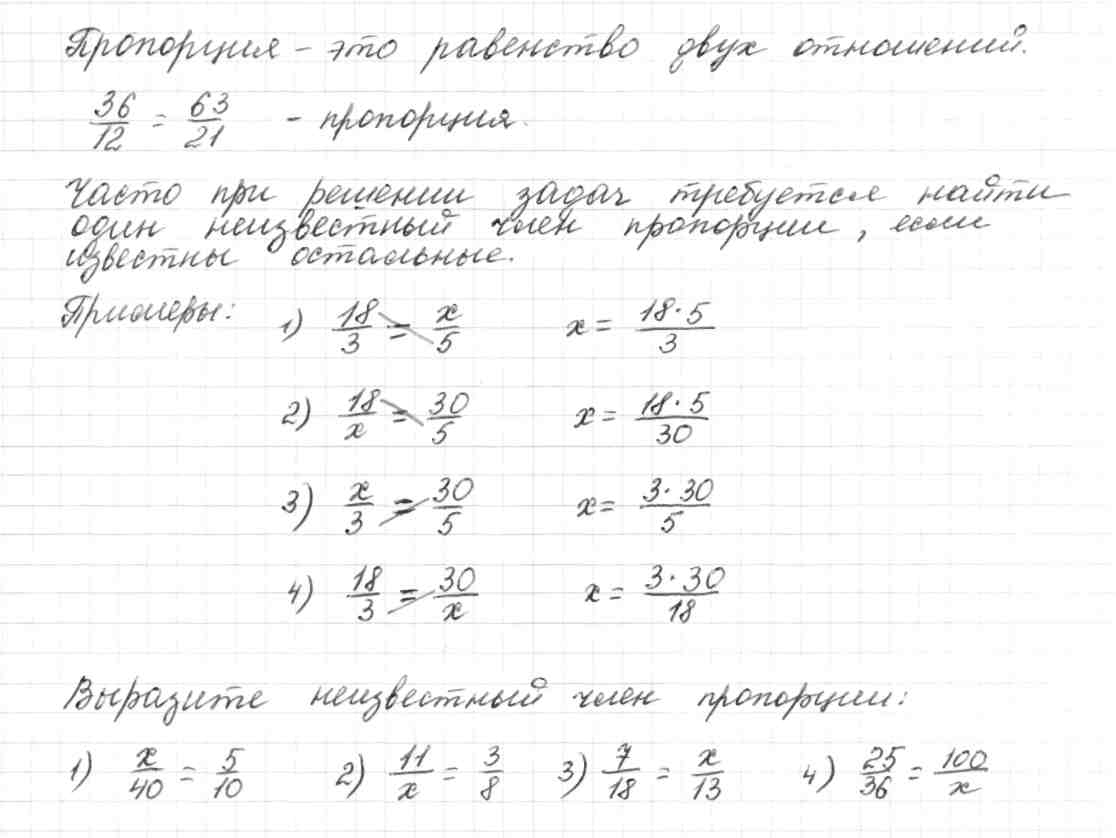 Пропорция - это равенство двух отношений.
36/12 = 63/21 - пропорция.
Часто при решении задач требуется найти
один неизвестный член пропорции, если
известны остальные.
Примеры: 1) 18/3 = x/5 x = 18·5/3
2) 18/x = 30/5 x = 18·5/30
3) x/3 = 30/5 x = 3·30/5
4) 18/3 = 30/x x = 3·30/18
Выразите неизвестный член пропорции:
1) x/40 = 5/10 2) 11/x = 3/8 3) 7/18 = x/13 4) 25/36 = 100/x